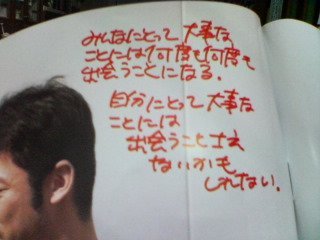 みんなにとって大事な
ことには何度も何度も
出会うことになる。
自分にとって大事な
ことには
出会うことさえ
ないかも
しれない。